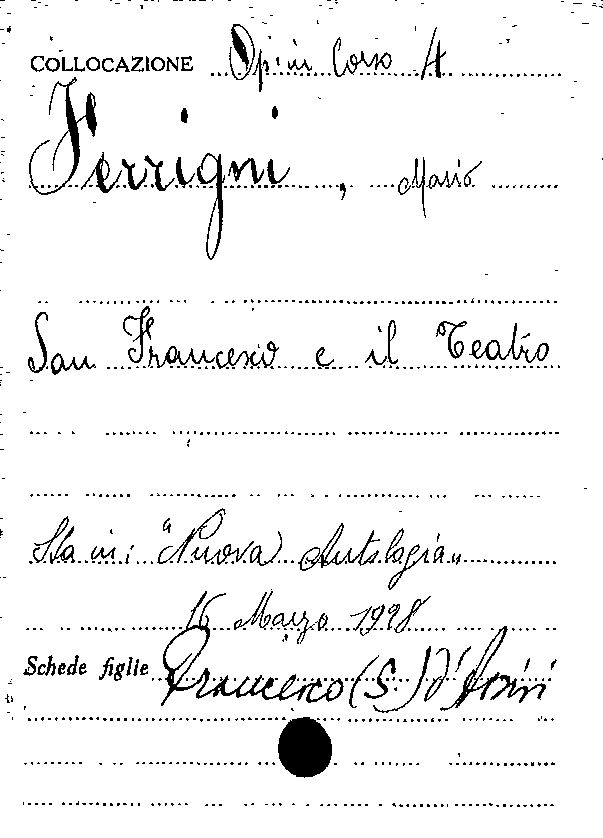 COLLOCAZIONE Op. in Corso 4
Ferrigni, Mario
San Francesco e il Teatro
Sta in: "Nuova Antologia"
16 Marzo 1928
Schede figlie Francesco (S.) d'Assisi